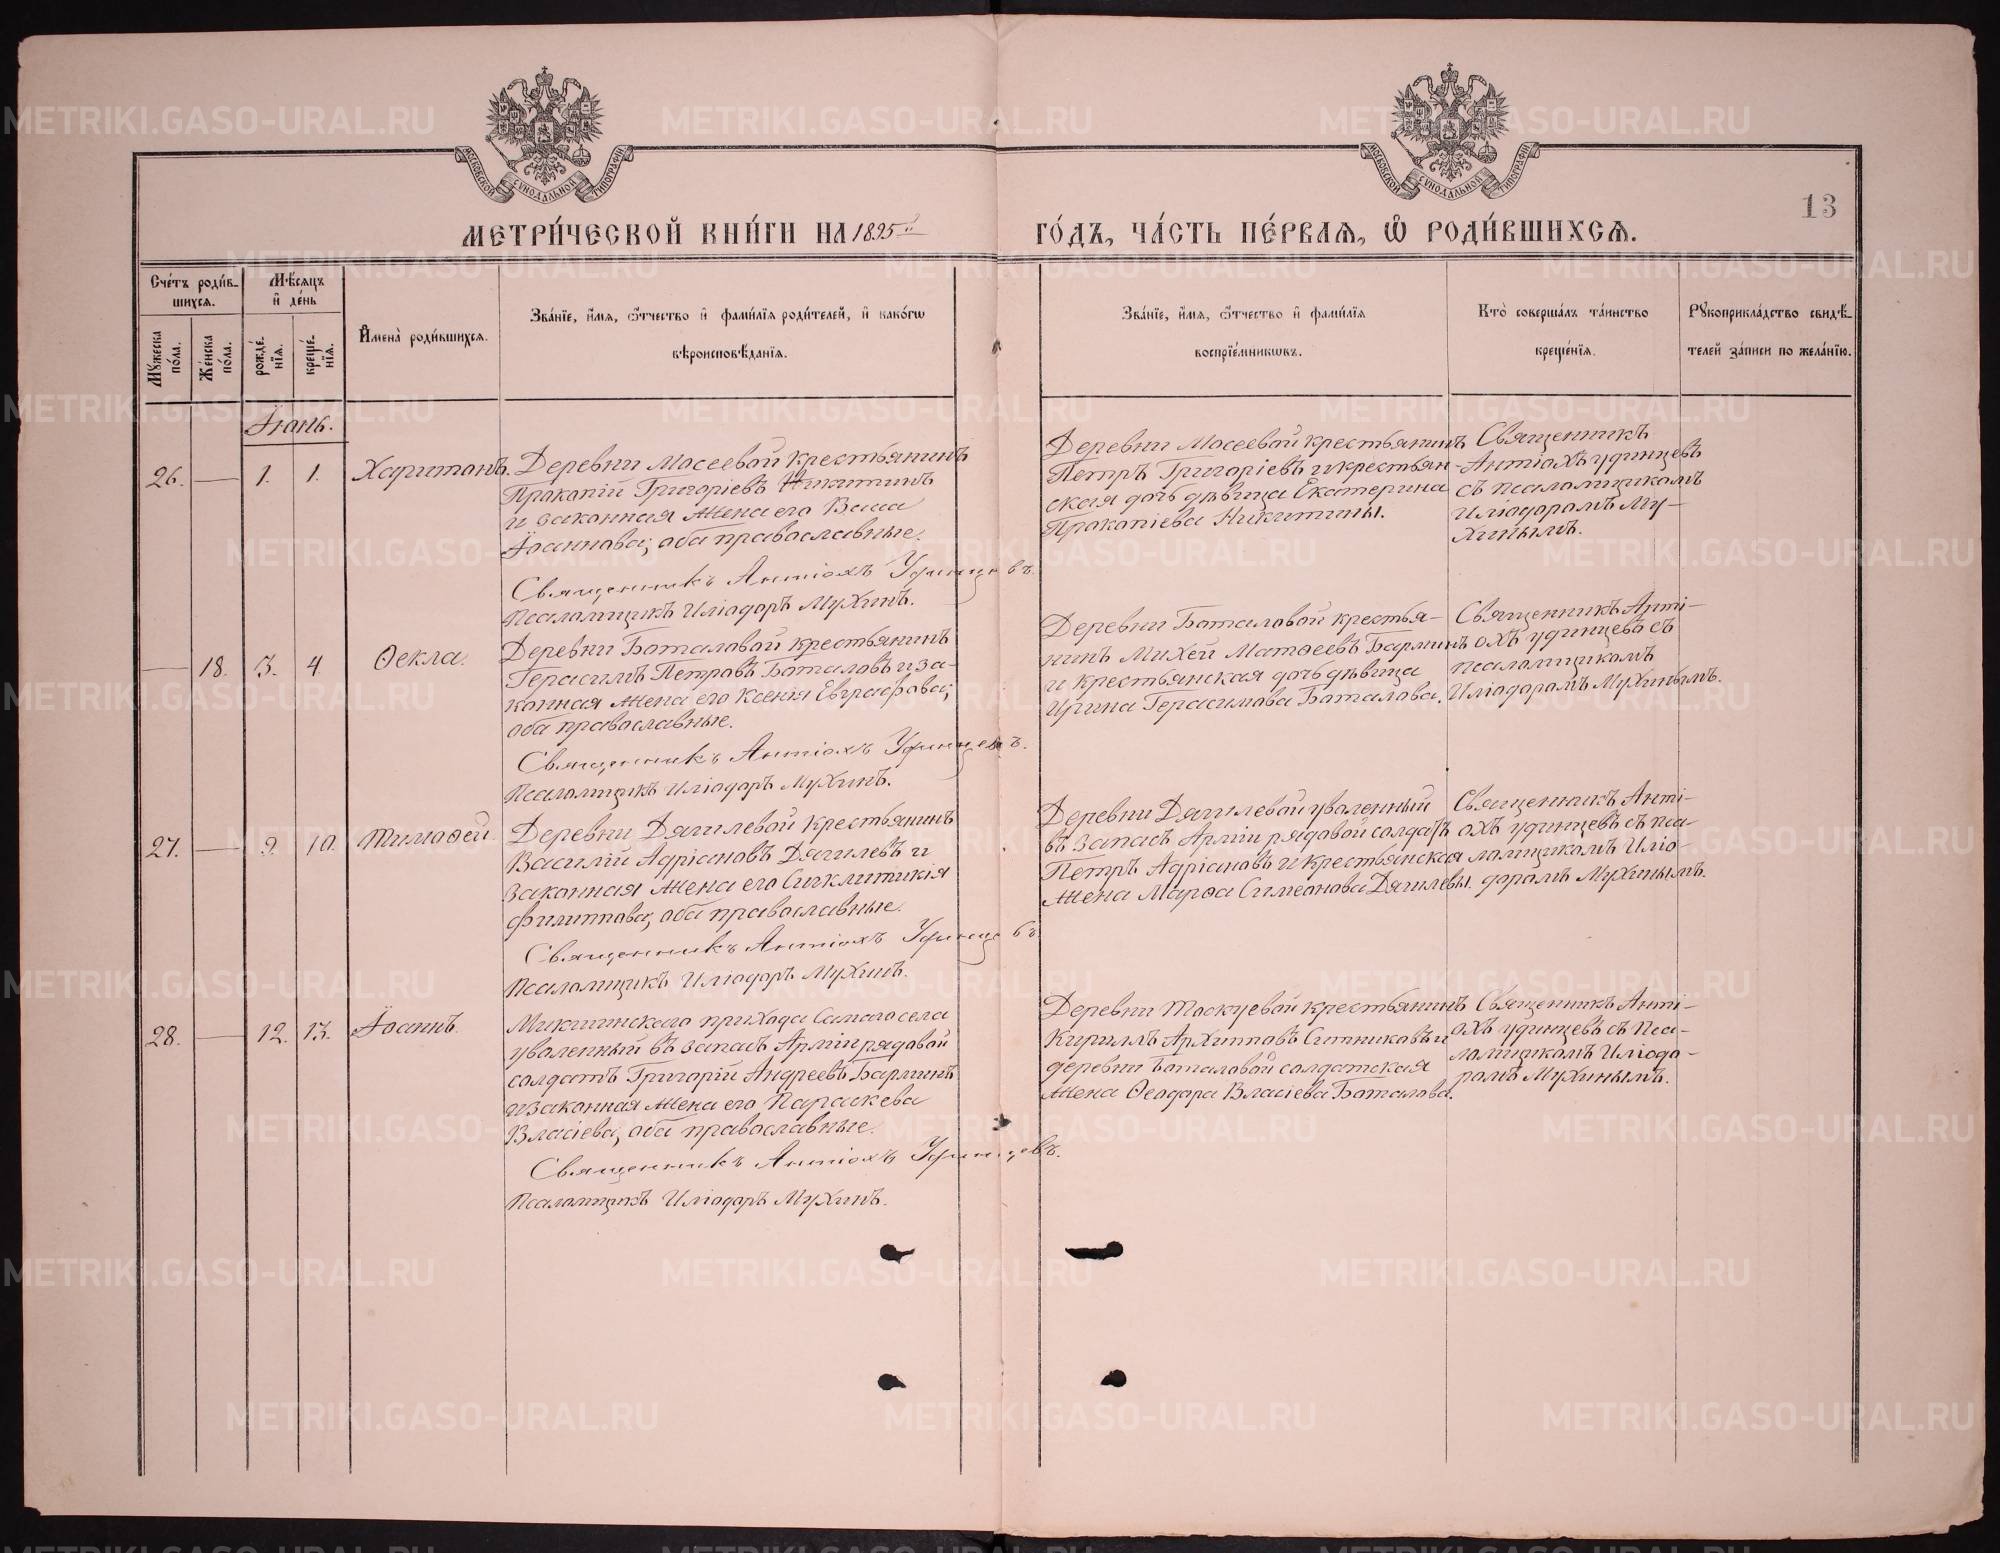 МОСКОВСКОЙ СѴНОДАЛЬНОЙ ТИПОГРАФІИ
МОСКОВСКОЙ СѴНОДАЛЬНОЙ ТИПОГРАФІИ
13
МЕТРИ́ЧЕСКОЙ КНИ́ГИ НА 1895й ГО́ДЪ, ЧА́СТЬ ПЕ́РВАѦ, Ѡ҆ РОДИ́ВШИХСѦ.
Сче́тъ роди́в-
шихсѧ.
Мѣ́сѧцъ
и҆ де́нь
Мꙋжеска по́ла.
Же́нска по́ла.
рожде́-
нїѧ.
креще́-
нїѧ.
И҆мена̀ роди́вшихсѧ.
Зва́нїе, и҆́мѧ, ѻ҆́тчество и҆ фами́лїѧ роди́телей, и҆ како́гѡ
вѣроисповѣ́данїѧ.
Зва́нїе, и҆́мѧ, ѻ҆́тчество и҆ фами́лїѧ
воспрїе́мникѡвъ.
Кто̀ соверша́лъ та́инство
креще́нїѧ.
Рꙋкоприкла́дство свидѣ́-
телей за́писи по жела́нїю.
Іюнь.
26.
—
1.
1.
Харитонъ.
Деревни Мосеевой крестьянинъ
Прокопій Григоріевъ Никитинъ
и законная жена его Васса
Іоаннова; оба православные.
Священникъ Антіохъ Удинцевъ.
Псаломщикъ Иліодоръ Мухинъ.
Деревни Мосеевой крестьянинъ
Петръ Григоріевъ и крестьян-
ская дочь девица Екатерина
Прокопіева Никитины.
Священникъ
Антіохъ Удинцевъ
съ псаломщикомъ
Иліодоромъ Му-
хинымъ.
—
18.
3.
4.
Ѳекла.
Деревни Боталовой крестьянинъ
Герасимъ Петровъ Боталовъ и за-
конная жена его Ксенія Евграфова;
оба православные.
Священникъ Антіохъ Удинцевъ.
Псаломщикъ Иліодоръ Мухинъ.
Деревни Боталовой крестья-
нинъ Михей Матѳеевъ Бармин
и крестьянская дочь девица
Ирина Герасимова Боталова.
Священникъ Анті-
охъ Удинцевъ съ
псаломщикомъ
Иліодоромъ Мухинымъ.
27.
—
9.
10.
Тимоѳей.
Деревни Дягилевой крестьянинъ
Василій Адріановъ Дягилевъ и
законная жена его Сиклитикія
Филиппова; оба православные.
Священникъ Антіохъ Удинцевъ.
Псаломщикъ Иліодоръ Мухинъ.
Деревни Дягилевой уволенный
въ запасъ Арміи рядовой солдатъ
Петръ Адріановъ и крестьянская
жена Марѳа Симеонова Дягилевы.
Священникъ Анті-
охъ Удинцевъ съ пса-
ломщикомъ Иліо-
доромъ Мухинымъ.
28.
—
12.
13.
Іоаннъ.
Микшинского прихода Самого села
уволенный въ запасъ Арміи рядовой
солдатъ Григорій Андреевъ Барминъ
и законная жена его Параскева
Власіева; оба православные.
Священникъ Антіохъ Удинцевъ.
Псаломщикъ Иліодоръ Мухинъ.
Деревни Таскуевой крестьянинъ
Кириллъ Архиповъ Ситниковъ и
деревни Боталовой солдатская
жена Ѳеодора Власіева Боталова.
Священникъ Анті-
охъ Удинцевъ съ Пса-
ломщикомъ Иліодо-
ромъ Мухинымъ.
METRIKI.GASO-URAL.RU